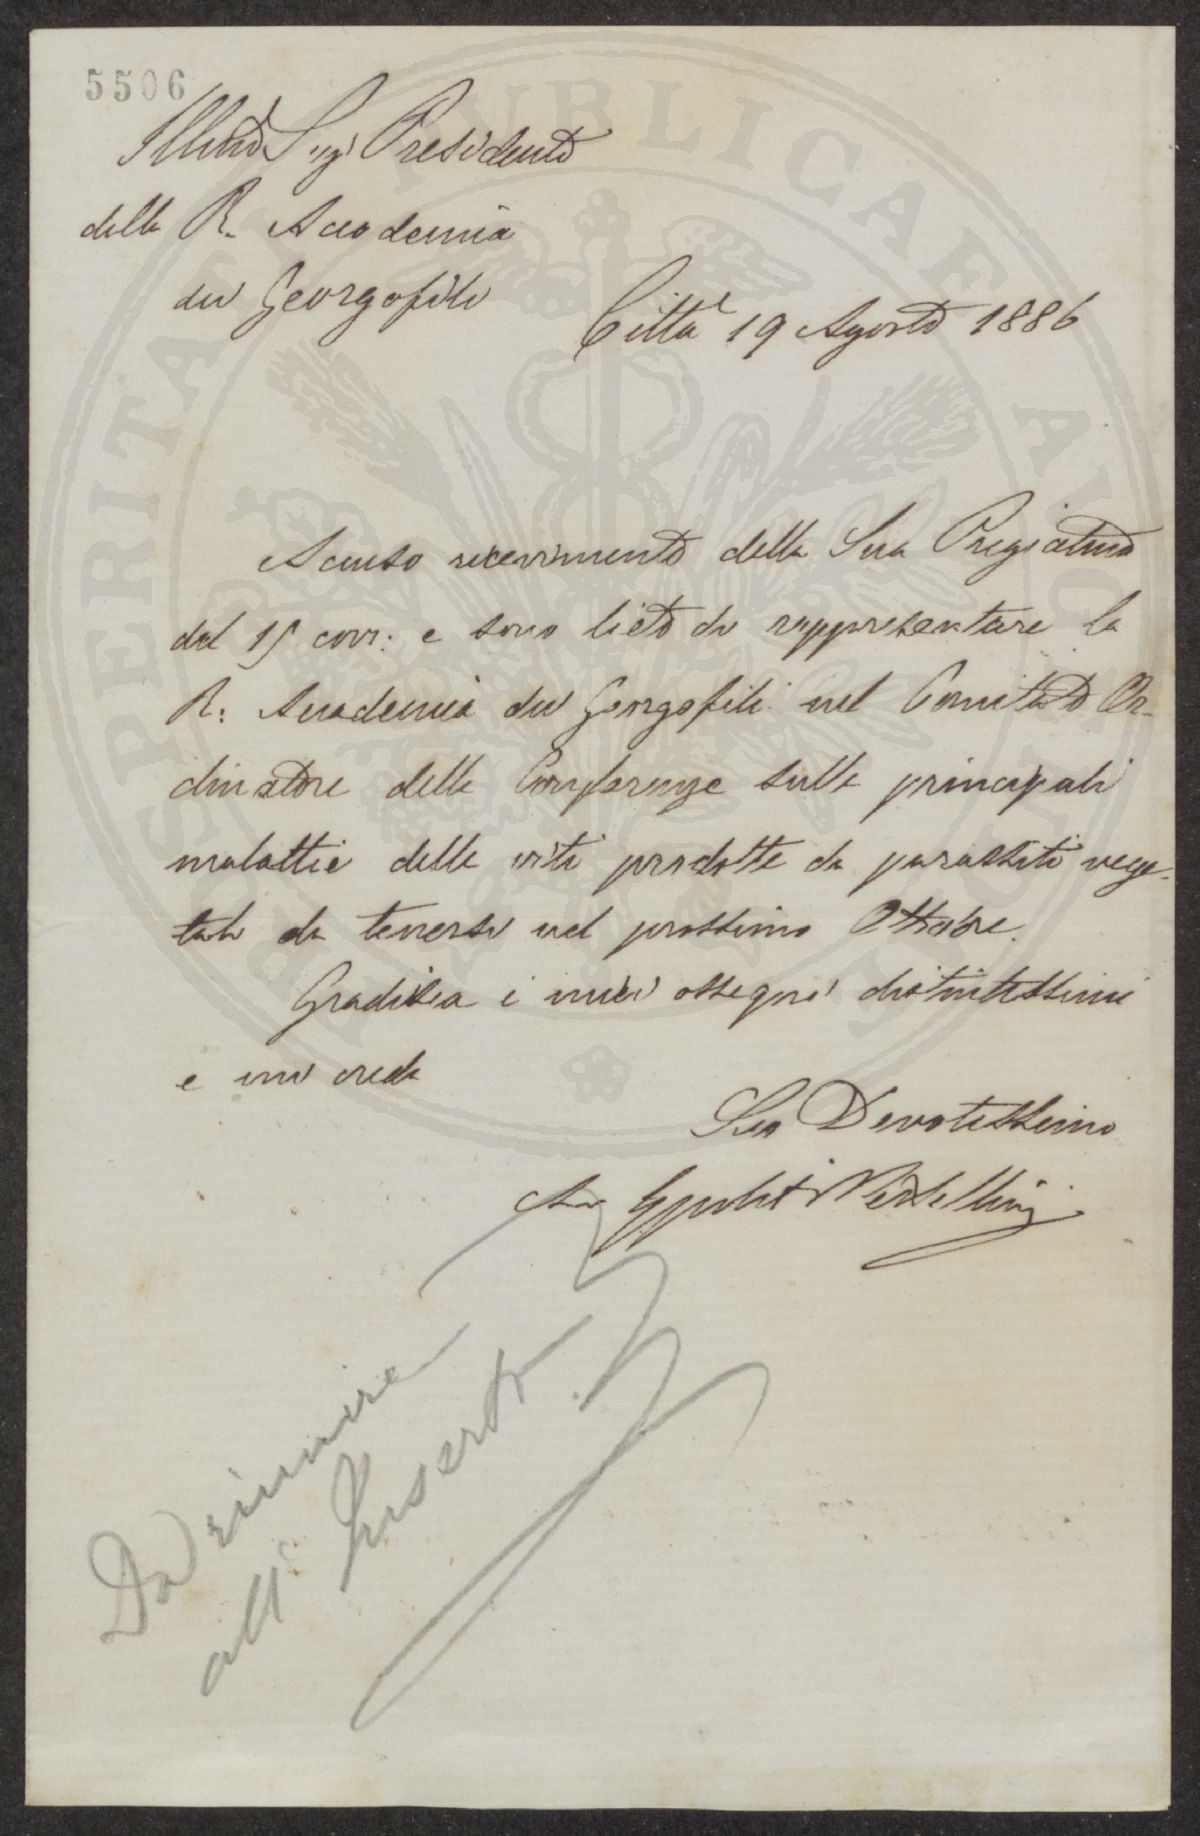 5506
Illmo Sigr Presidente
della R. Accademia
dei Georgofili
Città 19 Agosto 1886
Accuso ricevimento della Sua Pregiatma
del 15 corr: e sono lieto di rappresentare la
R: Accademia dei Georgofili nel Comitato Or-
dinatore delle Conferenze sulle principali
malattie delle viti prodotte da parassiti vege-
tali da tenersi nel prossimo Ottobre.
Gradisca i miei ossequi distintissimi
e mi creda
Suo Devotissimo
Da riunire
all' Inserto
PROSPERITATI PUBLICAE AUGENDAE